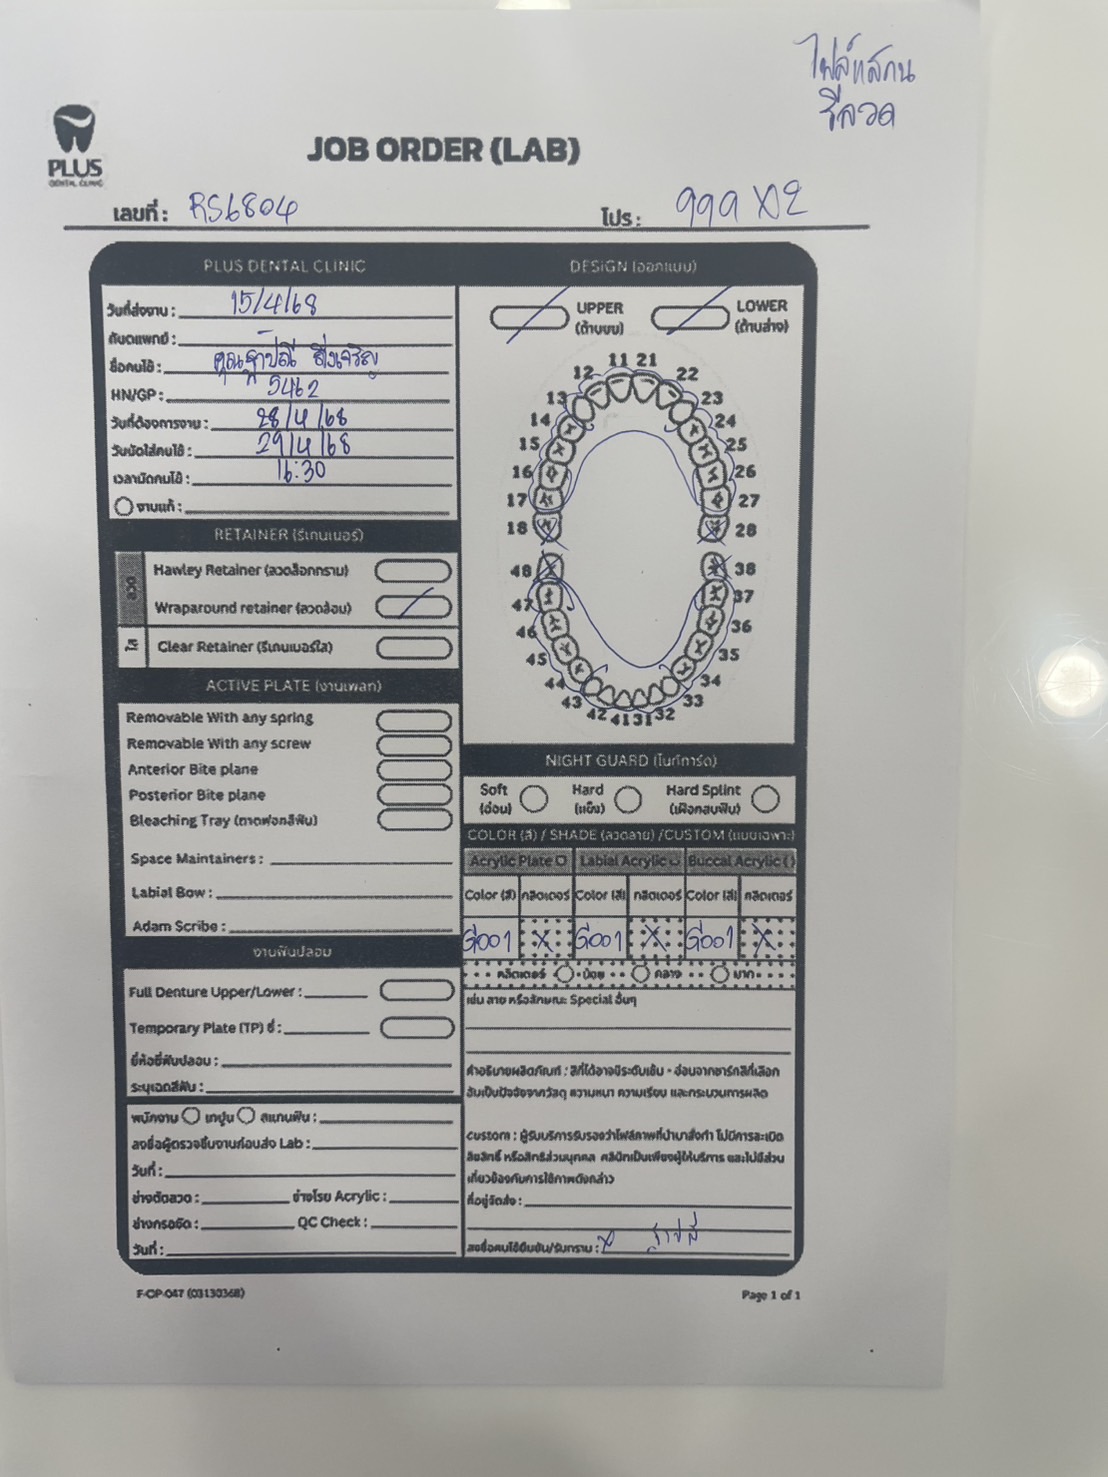 ไฟล์แสกน
รีลวด
PLUS
DENTAL CLINIC
JOB ORDER (LAB)
เลขที่ : RS6804
โปร : 999 X2
PLUS DENTAL CLINIC
วันที่ส่งงาน : 15/4/68
ทันตแพทย์ :
ชื่อคนไข้ : คุณฐาปณี
HN/GP : 5462
วันที่ต้องการงาน : 28/4/68
วันนัดใส่คนไข้ : 29/4/68
เวลานัดคนไข้ : 16:30
งานแก้ :
RETAINER (รีเทนเนอร์)
ลวด
Hawley Retainer (ลวดล็อกกราม)
Wraparound retainer (ลวดล้อม)
ใส
Clear Retainer (รีเทนเนอร์ใส)
ACTIVE PLATE (งานเพลท)
Removable With any spring
Removable With any screw
Anterior Bite plane
Posterior Bite plane
Bleaching Tray (ถาดฟอกสีฟัน)
Space Maintainers :
Labial Bow :
Adam Scribe :
งานฟันปลอม
Full Denture Upper/Lower :
Temporary Plate (TP) ซี่ :
ยี่ห้อซี่ฟันปลอม :
ระบุเฉดสีฟัน :
พนักงาน เทปูน สแกนฟัน :
ลงชื่อผู้ตรวจชิ้นงานก่อนส่ง Lab :
วันที่ :
ช่างดัดลวด : ช่างโรย Acrylic :
ช่างกรอขัด : QC Check :
วันที่ :
DESIGN (ออกแบบ)
UPPER
(ด้านบน)
LOWER
(ด้านล่าง)
11 21
12 22
13 23
14 24
15 25
16 26
17 27
18 28
48 38
47 37
46 36
45 35
44 34
43 33
42 41 31 32
NIGHT GUARD (ไนท์การ์ด)
Soft
(อ่อน)
Hard
(แข็ง)
Hard Splint
(เฝือกสบฟัน)
COLOR (สี) / SHADE (ลวดลาย) /CUSTOM (แบบเฉพาะ)
Acrylic Plate Labial Acrylic Buccal Acrylic
Color (สี) กลิตเตอร์ Color (สี) กลิตเตอร์ Color (สี) กลิตเตอร์
G001 X G001 X G001 X
กลิตเตอร์ น้อย กลาง มาก
เช่น ลาย หรือลักษณะ Special อื่นๆ
คำอธิบายผลิตภัณฑ์ : สีที่ได้อาจมีระดับเข้ม - อ่อนจากชาร์ทสีที่เลือก
อันเป็นปัจจัยจากวัสดุ ความหนา ความเรียบ และกระบวนการผลิต
Custom : ผู้รับบริการรับรองว่าไฟล์ภาพที่นำมาสั่งทำ ไม่มีการละเมิด
ลิขสิทธิ์ หรือสิทธิส่วนบุคคล คลินิกเป็นเพียงผู้ให้บริการ และไม่มีส่วน
เกี่ยวข้องกับการใช้ภาพดังกล่าว
ที่อยู่จัดส่ง :
ลงชื่อคนไข้ยืนยัน/รับทราบ : x ฐาปณี
F-OP-047 (03130368)
Page 1 of 1